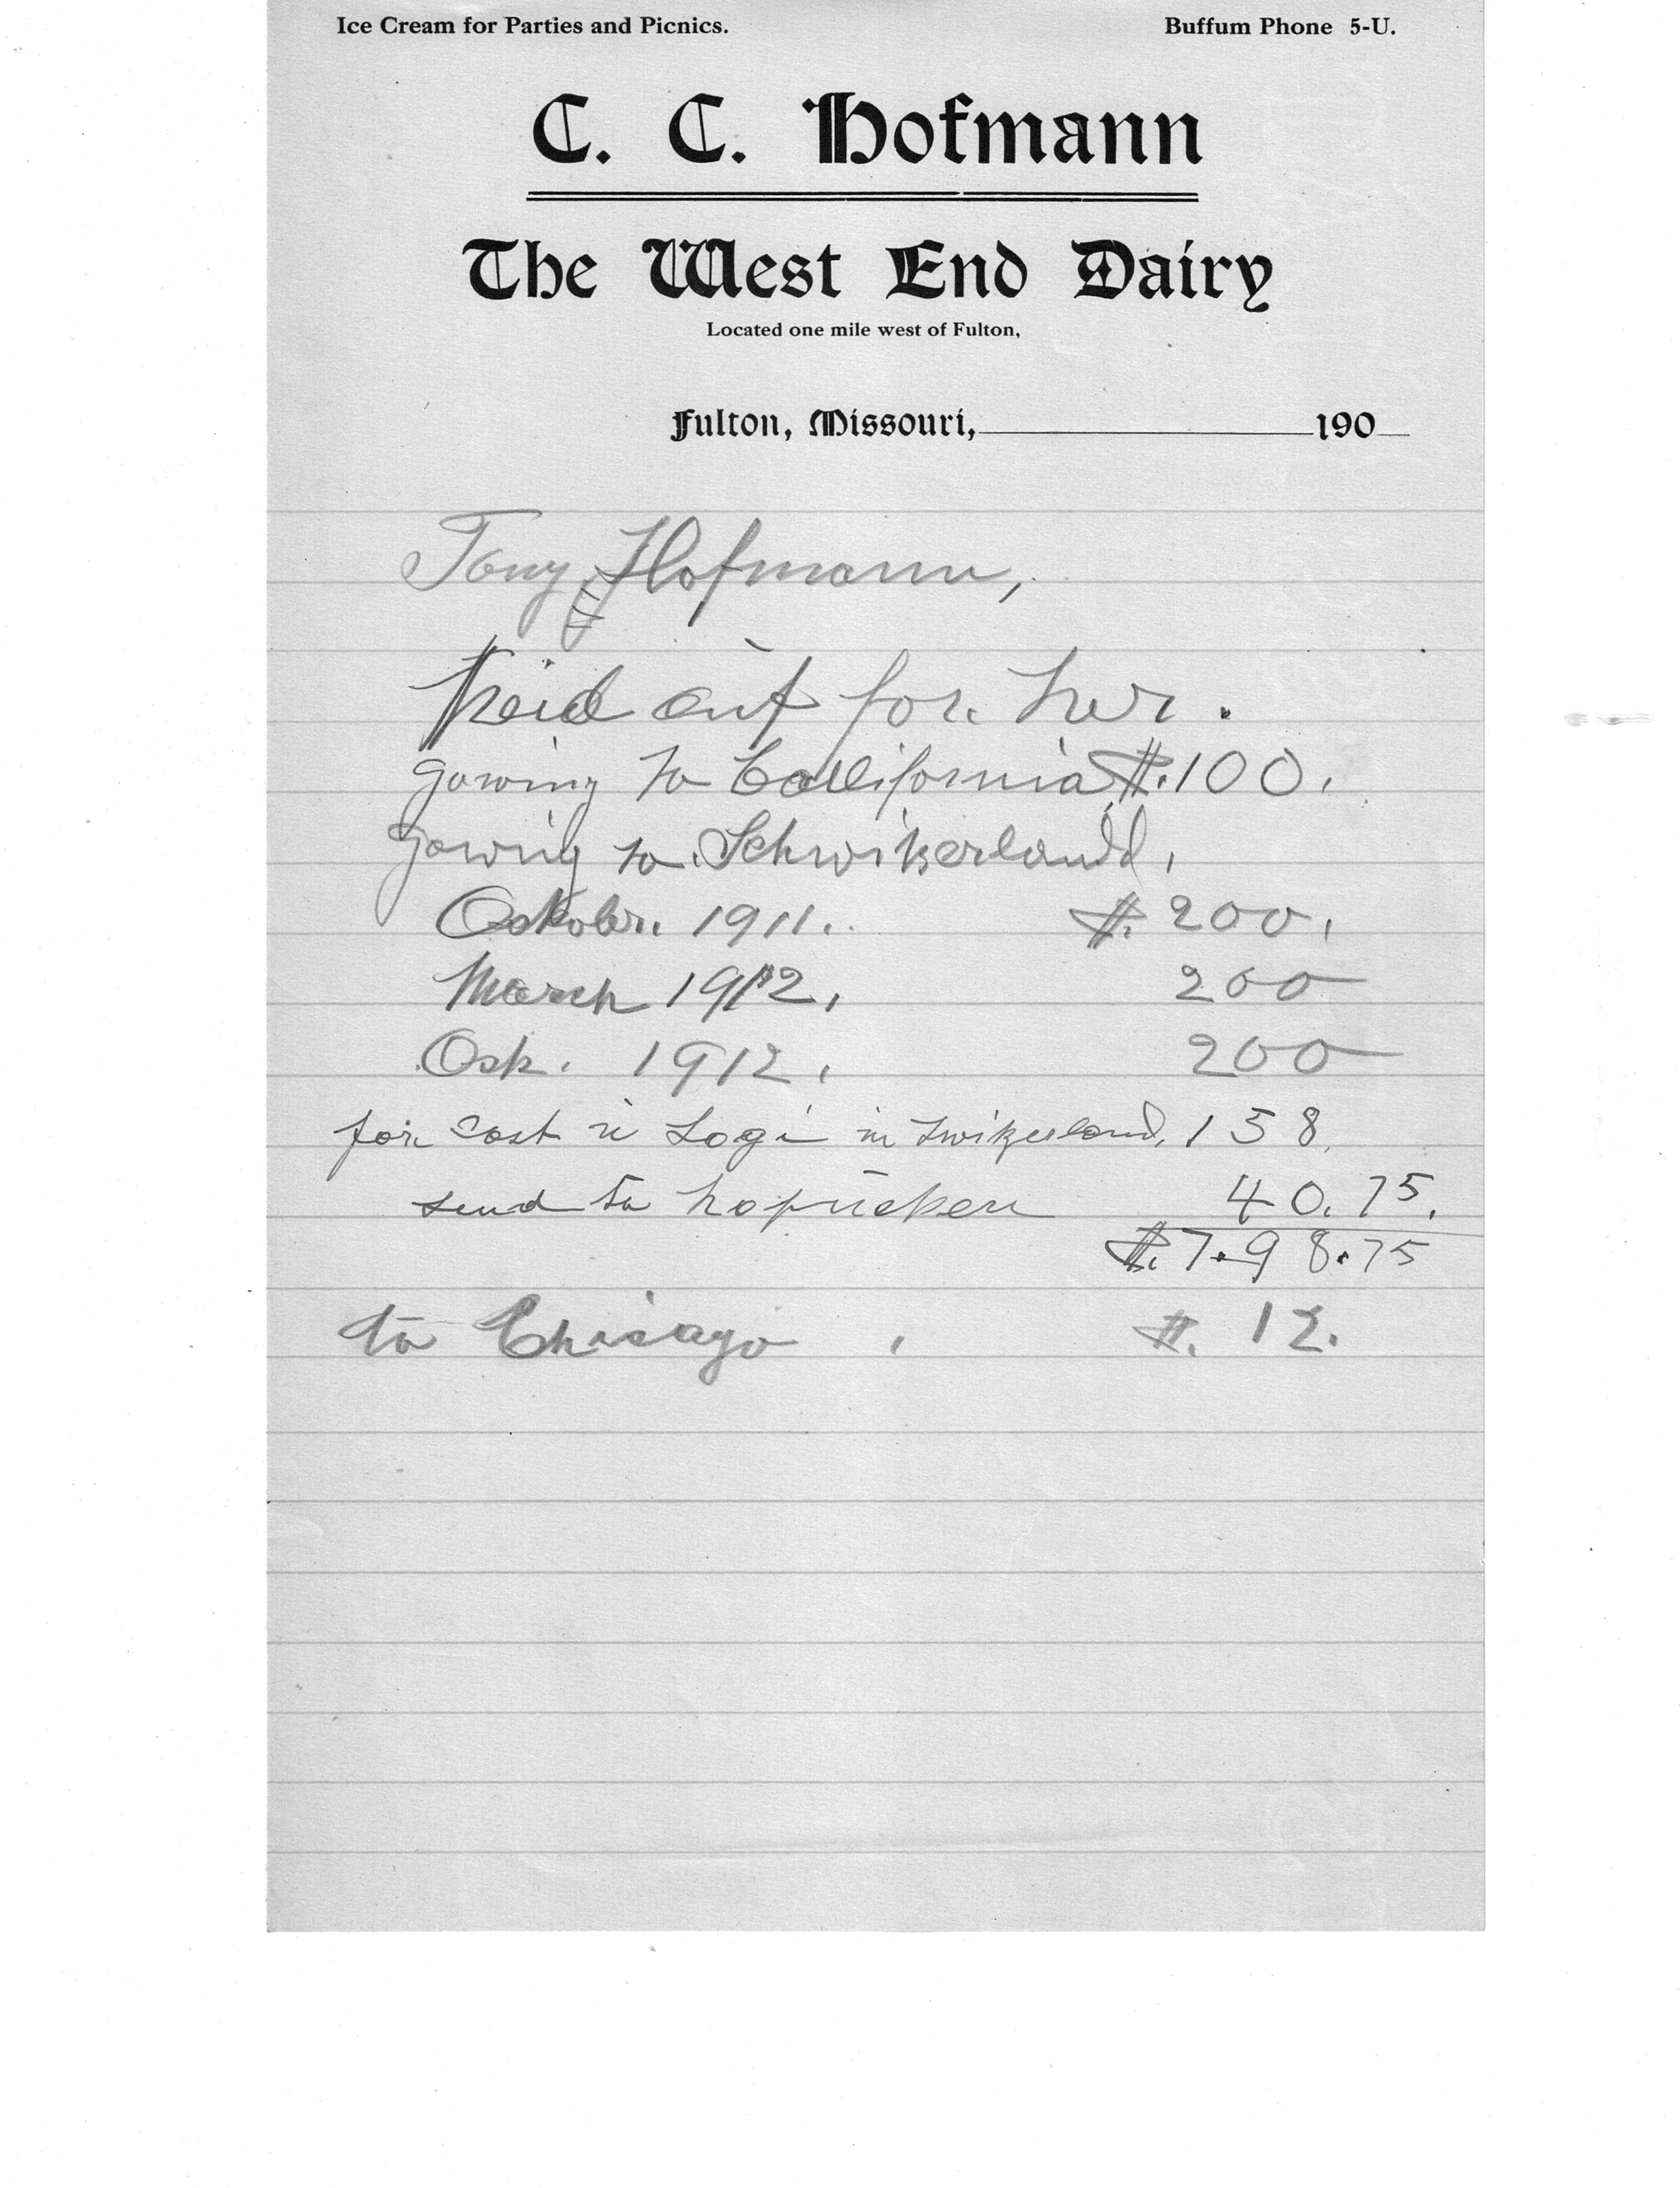 Ice Cream for Parties and Picnics. Buffum Phone 5-U.
C. C. Hofmann
The West End Dairy
Located one mile west of Fulton,
Fulton, Missouri, 190
Tony Hofmann,
Peid out for her.
gowing to Callifornia $.100.
gowing to Schwizerland,
Octkober. 1911. $. 200.
March 1912. 200
Ock. 1912. 200
for cost in Logi in Zwizerland, 158.
send to 40.75.
$.7.98.75
to Chicago, $. 12.